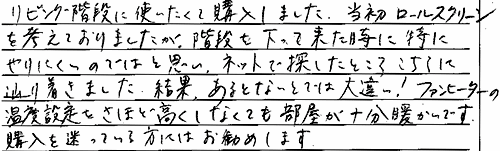 リビング階段に使いたくて購入しました。当初ロールスクリーン
を考えておりましたが、階段を下って来た時に特に
やりにくいのではと思い、ネットで探したところこちらに
辿り着きました。結果、あるとないとでは大違い！ファンヒーターの
温度設定をさほど高くしなくても部屋が十分暖かいです。
購入を迷っている方にはお勧めします。